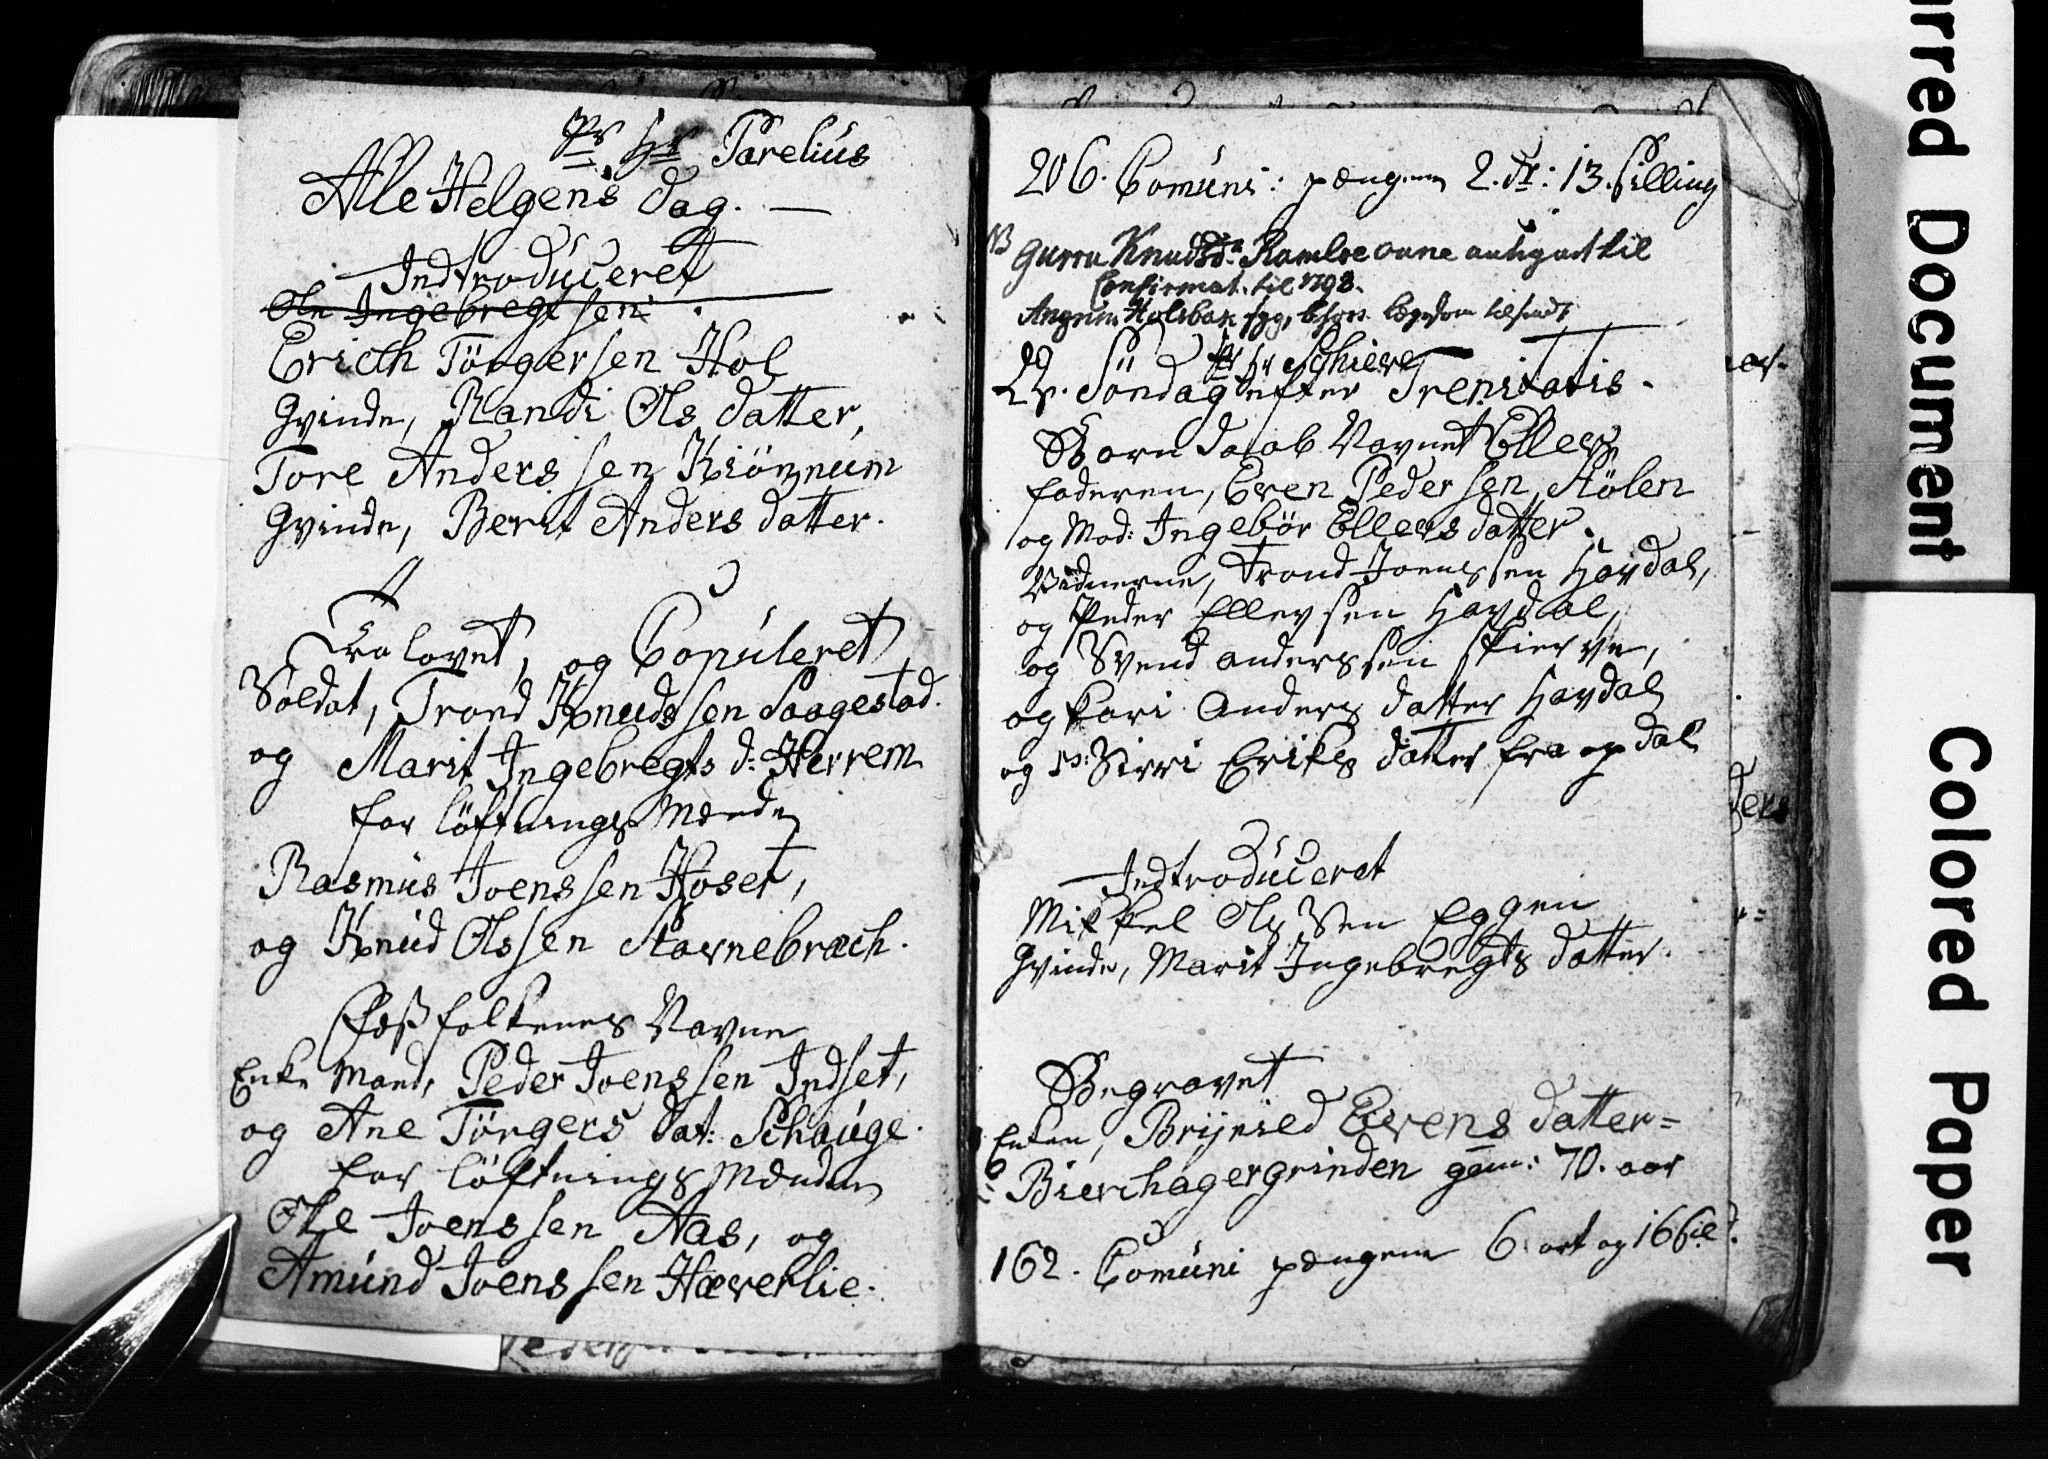 Pr Hr Parelius
Alle Helgens Dag. —
Indtroduceret
Ole Ingebregtsen
Erich Törgersen Hol
Qvinde, Randi Ols datter,
Tore Anderssen Kiönnum
Qvinde, Berit Anders datter.
Trolovet, og Copuleret
Soldat, Trond Knudssen Saagestad.
og Marit Ingebregts d: Herrem
for löftnings Mænde
Rasmus Joenssen Hoset,
og Knud Olssen Stavnebræch.
Fæstfolkenes Navne
Enke Mand, Peder Joenssen Indset,
og Ane Törgers dat: Schauge.
for löftnings Mænden
Ole Joenssen Aas, og
Amund Joenssen Hæverlie.
206. Comuni: pængene 2. dr: 13. skilling
NB Gurru Knudsdr Ramloe antegnet til
Confirmat. til 1798.
Holsbak syg,
Pr Hr Schierve
22. Söndag efter Trenitatis.
Barn daab Navnet Ellev
faderen, Even Pedersen Stölen
og Mod: Ingebör Ellevs datter.
Vidnerne, Trond Joenssen Havdal,
og Peder Ellevsen Havdal,
og Svend anderssen skierve,
og kari Anders datter Havdal
og p: Sirri Eriks datter fra opdal
Indtroduceret
Mikkel Ols Sen Eggen
Qvinde, Marit Ingebregts datter.
Begravet
Enken, Brynild Evens datter=
Bierchagergrinden gam: 70. aar
162. Comuni pængene 6 ort og 16 skil:
ders
Colored Paper
rred Document